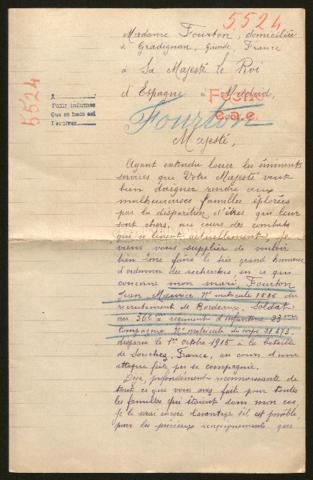 5524
Madame Fourton, domiciliée
à Gradignan, Gironde, France
à Sa Majesté le Roi
d'Espagne à Madrid
5524
A
Para informes
Que se hace así
Fecho
c.a.e.
Fourton
Majesté,
Ayant entendu louer les éminents
services que Votre Majesté veut
bien daigner rendre aux
malheureuses familles éplorées
par la disparition d'êtres qui leur
sont chers, au cours des combats
qui se livrent actuellement, je
viens vous supplier de vouloir
bien me faire le très grand honneur
d'ordonner des recherches, en ce qui
concerne mon mari, Fourton
Jean Maurice, N° matricule 1886 du
recrutement de Bordeaux, Soldat
au 360e régiment d'infanterie 23e
Compagnie, N° matricule du corps
disparu le 1er octobre 1915 à la bataille
de Souchez, France, au cours d'une
attaque faite par sa compagnie.
Déjà profondément reconnaissante de
tout ce que vous avez fait pour toutes
les familles qui étaient dans mon cas,
je le serai encore davantage s'il est possible,
pour les précieux renseignements que